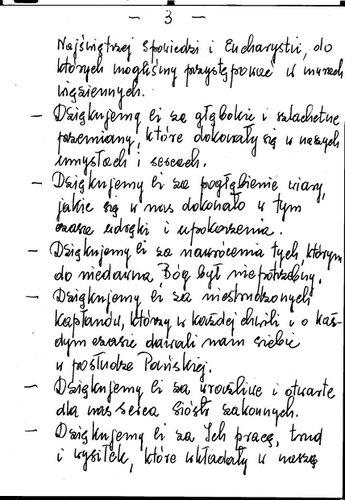 — 3 —
Najświętszej Spowiedzi i Eucharystii, do
których mogliśmy przystępować w murach
więziennych.
— Dziękujemy Ci za głębokie i szlachetne
przemiany, które dokonały się w naszych
umysłach i sercach.
— Dziękujemy Ci za pogłębienie wiary,
jakie się w nas dokonało w tym
czasie udręki i upokorzenia.
— Dziękujemy Ci za nawrócenia tych, którym
do niedawna Bóg był niepotrzebny.
— Dziękujemy Ci za niestrudzonych
Kapłanów, którzy w każdej chwili i o każ-
dym czasie dawali nam siebie
w posłudze Pańskiej.
— Dziękujemy Ci za wrażliwe i otwarte
dla nas serca Sióstr zakonnych.
— Dziękujemy Ci za Ich pracę, trud
i wysiłek, które wkładały w naszą